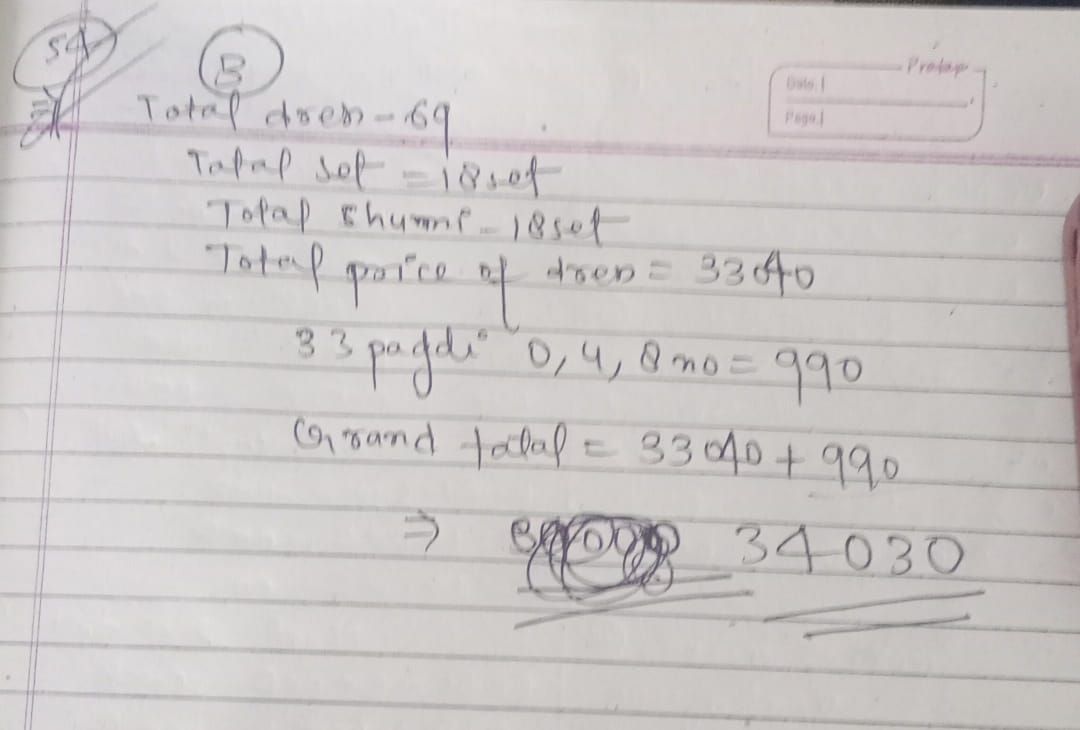 54
B
Pratap
Date.|
Page.|
Total dress - 69
Total set = 18 set
Total chunni - 18 set
Total price of dress = 33040
33 pagdi 0, 4, 8 no = 990
Grand total = 33040 + 990
⇒ 34030